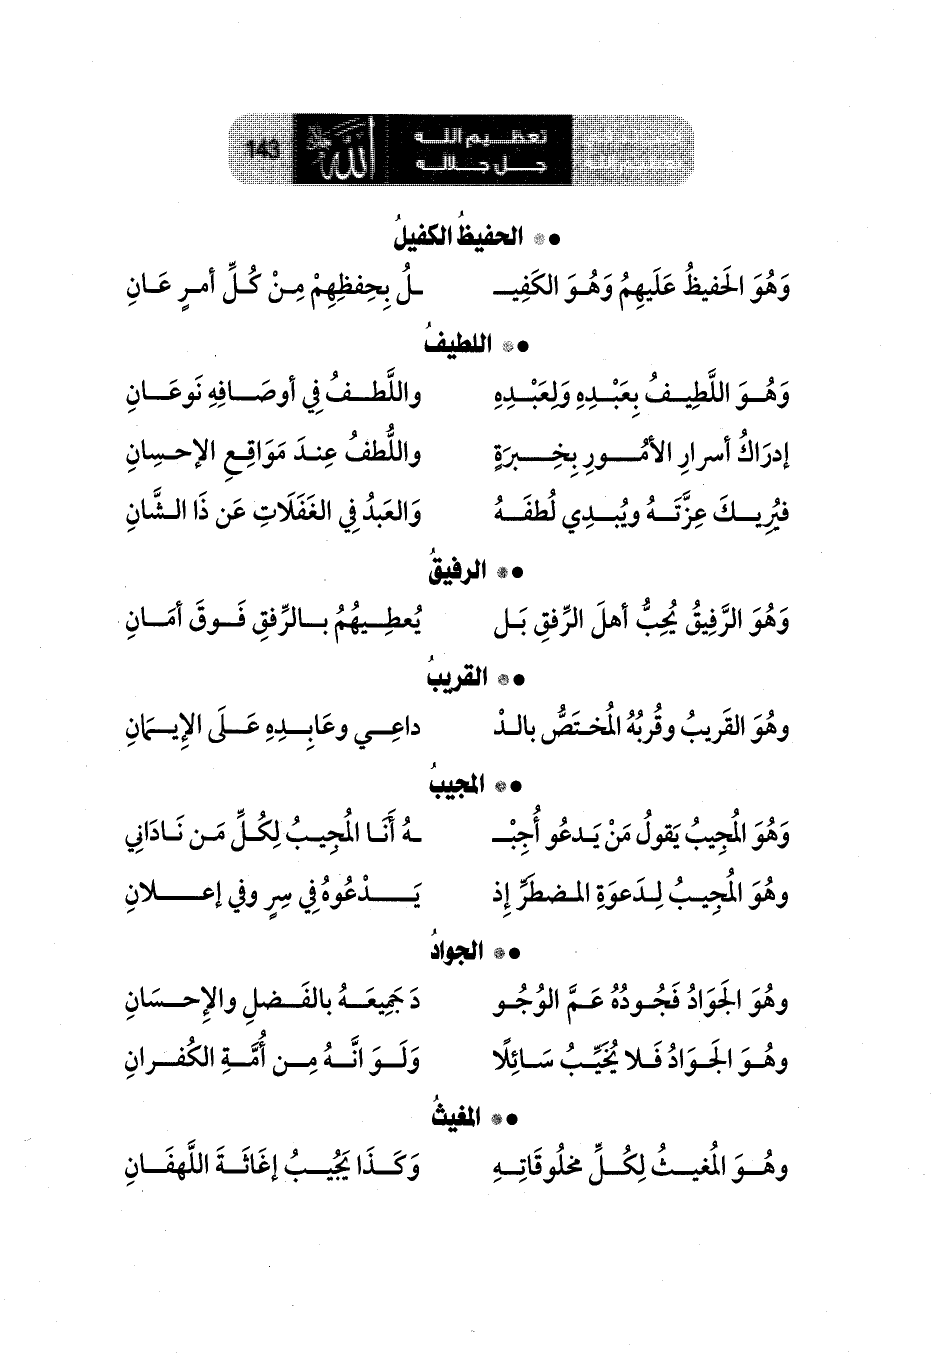 143 الله جل جلاله تعظيم الله
جل جلاله
الحفيظُ الكفيلُ
وَهُوَ الحَفيظُ عَلَيهِمُ وَهُوَ الكَفِيـ ـلُ بِحِفظِهِمْ مِنْ كُلِّ أمرٍ عَانِ
اللطيفُ
وَهُوَ اللَّطِيفُ بِعَبْدِهِ وَلِعَبْدِهِ واللَّطفُ فِي أوصَافِهِ نَوعَانِ
إدرَاكُ أسرارِ الأمُورِ بِخِبرَةٍ واللُّطفُ عِندَ مَوَاقِعِ الإحسِانِ
فيُرِيكَ عِزَّتَهُ ويُبدِي لُطفَهُ وَالعَبدُ فِي الغَفَلَاتِ عَن ذَا الشَّانِ
الرفيقُ
وَهُوَ الرَّفِيقُ يُحِبُّ أهلَ الرِّفقِ بَل يُعطِيهُمُ بالرِّفقِ فَوقَ أمَانِ
القريبُ
وهُوَ القَريبُ وقُربُهُ المُختَصُّ بالدْ داعِي وعَابِدِهِ عَلَى الإيمَانِ
المجيبُ
وَهُوَ المُجِيبُ يَقولُ مَنْ يَدعُو أُجِبْـ ـهُ أَنَا المُجِيبُ لِكُلِّ مَن نَادَانِي
وهُوَ المُجِيبُ لِدَعوَةِ المضطَرِّ إِذ يَدْعُوهُ فِي سِرٍ وفي إعلانِ
الجوادُ
وهُوَ الجَوَادُ فَجُودُهُ عَمَّ الوُجُو دَ جَمِيعَهُ بالفَضلِ والإِحسَانِ
وهُوَ الجَوَادُ فَلا يُخَيِّبُ سَائِلًا وَلَوَ انَّهُ مِن أُمَّةِ الكُفرانِ
المغيثُ
وهُوَ المُغيثُ لِكُلِّ مخلُوقَاتِهِ وَكَذَا يَجُيبُ إغَاثَةَ اللَّهفَانِ